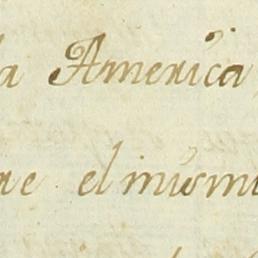 la America
re el mismo